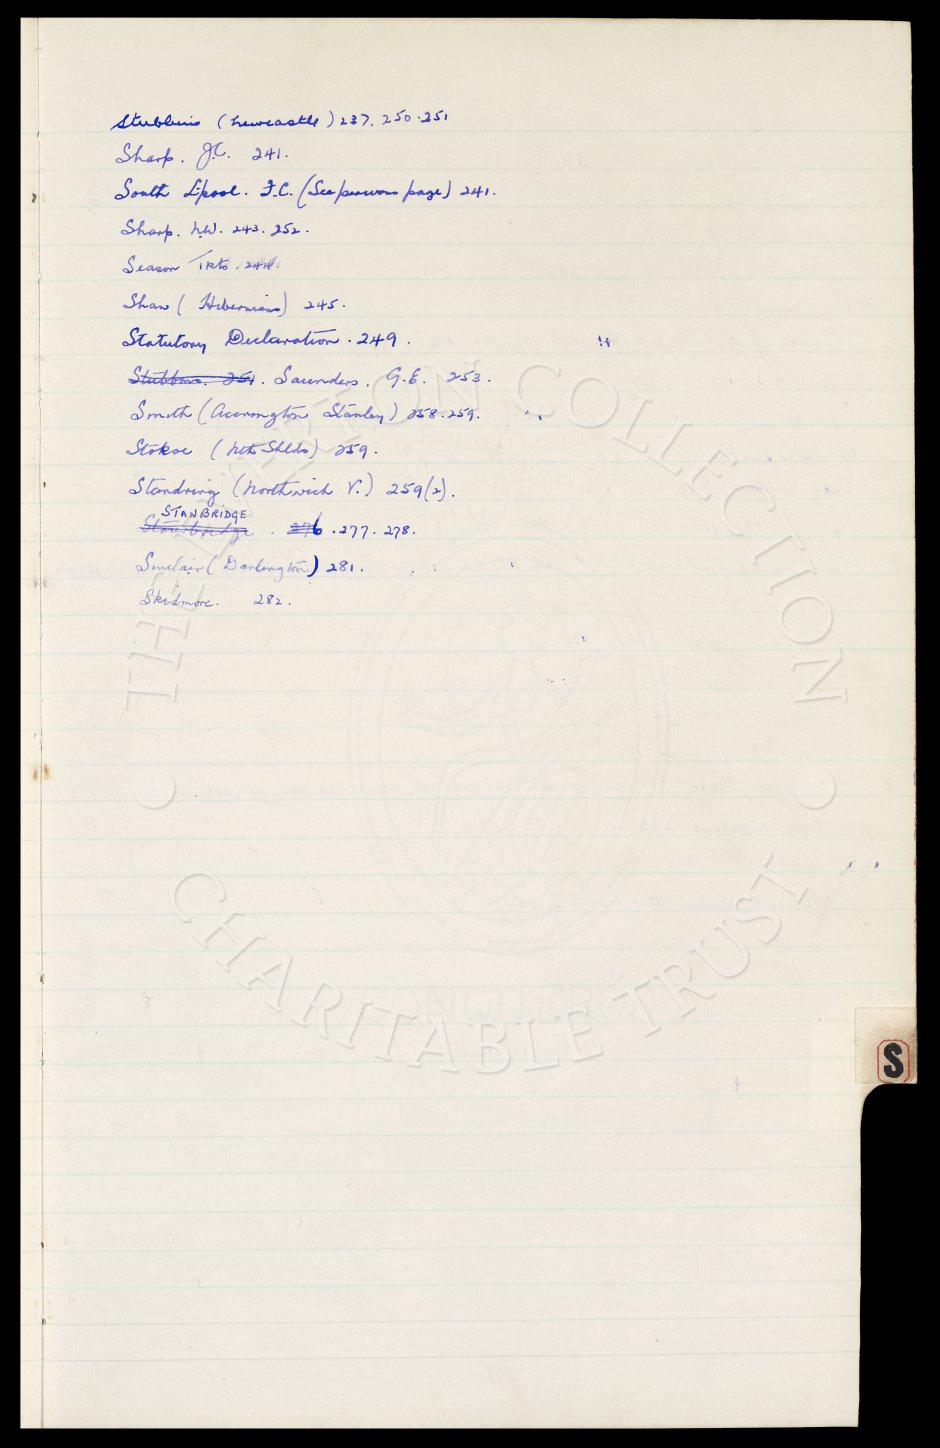 Stubbins (Newcastle) 237. 250. 251
Sharp. J.C. 241.
South L'pool. F.C. (See previous page) 241.
Sharp. N.W. 243. 252.
Season Tkts. 244.
Shaw (Hibernians) 245.
Statutory Declaration. 249.
Stubbins. 251. Saunders. G.E. 253.
Smith (Accrington Stanley) 258. 259.
Stokoe (Nth Shlds) 259.
Standring (Northwich V.) 259(2).
STANBRIDGE
Stourbridge. 276. 277. 278.
Sinclair (Darlington) 281.
Skidmore. 282.
S
THE EVERTON COLLECTION
CHARITABLE TRUST